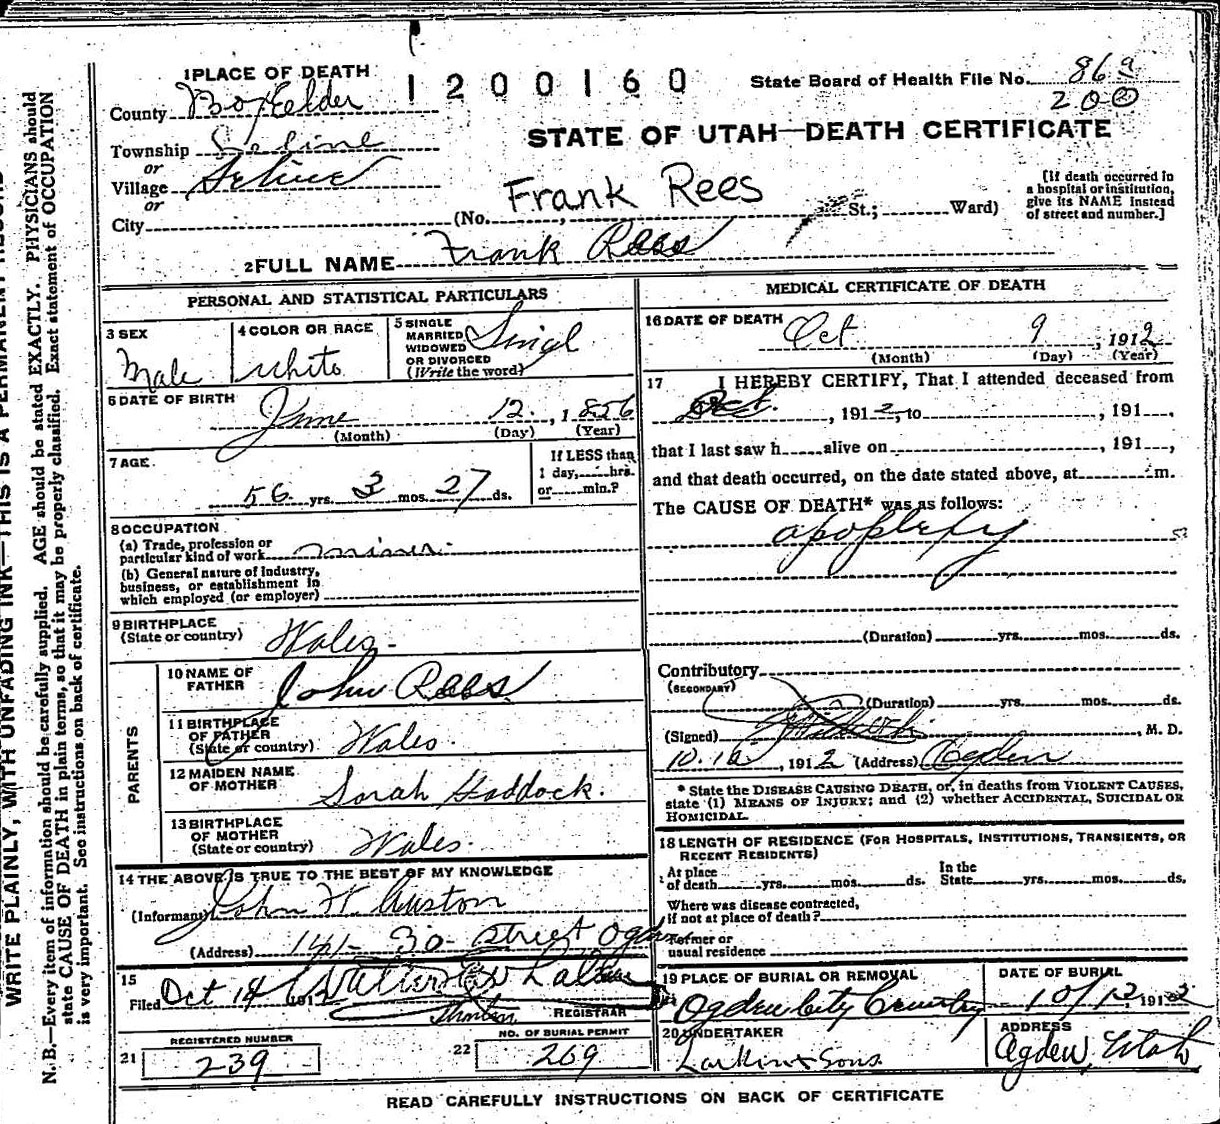 1 PLACE OF DEATH
1200160
State Board of Health File No. 86 a
200
County Box Elder
STATE OF UTAH—DEATH CERTIFICATE
Township Saline
or
Village Saline
or
City
(No. Frank Rees St.; Ward)
[If death occurred in a hospital or institution, give its NAME instead of street and number.]
2 FULL NAME Frank Rees
PERSONAL AND STATISTICAL PARTICULARS
3 SEX
Male
4 COLOR OR RACE
white
5 SINGLE
MARRIED
WIDOWED
OR DIVORCED
(Write the word)
Singl
6 DATE OF BIRTH
June 12, 1856
(Month) (Day) (Year)
7 AGE
56 yrs. 3 mos. 27 ds.
If LESS than
1 day, hrs.
or min.?
8 OCCUPATION
(a) Trade, profession or
particular kind of work miner
(b) General nature of Industry,
business, or establishment in
which employed (or employer)
9 BIRTHPLACE
(State or country) Wales
PARENTS
10 NAME OF
FATHER John Rees
11 BIRTHPLACE
OF FATHER
(State or country) Wales
12 MAIDEN NAME
OF MOTHER Sarah Haddock.
13 BIRTHPLACE
OF MOTHER
(State or country) Wales.
14 THE ABOVE IS TRUE TO THE BEST OF MY KNOWLEDGE
(Informant) John W.
(Address) 141- 30 Street Ogden
15
Filed Oct 14 1912
REGISTRAR
REGISTERED NUMBER
21 239
NO. OF BURIAL PERMIT
22 269
MEDICAL CERTIFICATE OF DEATH
16 DATE OF DEATH
Oct 9, 1912
(Month) (Day) (Year)
17 I HEREBY CERTIFY, That I attended deceased from
Oct. , 1912, to , 191 ,
that I last saw h alive on , 191 ,
and that death occurred, on the date stated above, at m.
The CAUSE OF DEATH* was as follows:
apoplexy
(Duration) yrs. mos. ds.
Contributory
(SECONDARY)
(Duration) yrs. mos. ds.
(Signed) , M. D.
, 1912 (Address) Ogden
* State the DISEASE CAUSING DEATH, or, in deaths from VIOLENT CAUSES,
state (1) MEANS OF INJURY; and (2) whether ACCIDENTAL, SUICIDAL OR
HOMICIDAL.
18 LENGTH OF RESIDENCE (FOR HOSPITALS, INSTITUTIONS, TRANSIENTS, OR
RECENT RESIDENTS)
At place
of death yrs. mos. ds.
In the
State yrs. mos. ds.
Where was disease contracted,
if not at place of death?
Former or
usual residence
19 PLACE OF BURIAL OR REMOVAL
Ogden City Cemetery
DATE OF BURIAL
10/12 1912
20 UNDERTAKER
Larkin & Sons
ADDRESS
Ogden, Utah
READ CAREFULLY INSTRUCTIONS ON BACK OF CERTIFICATE
WRITE PLAINLY, WITH UNFADING INK—THIS IS A PERMANENT RECORD
N. B.—Every item of information should be carefully supplied. AGE should be stated EXACTLY. PHYSICIANS should
state CAUSE OF DEATH in plain terms, so that it may be properly classified. Exact statement of OCCUPATION
is very important. See instructions on back of certificate.